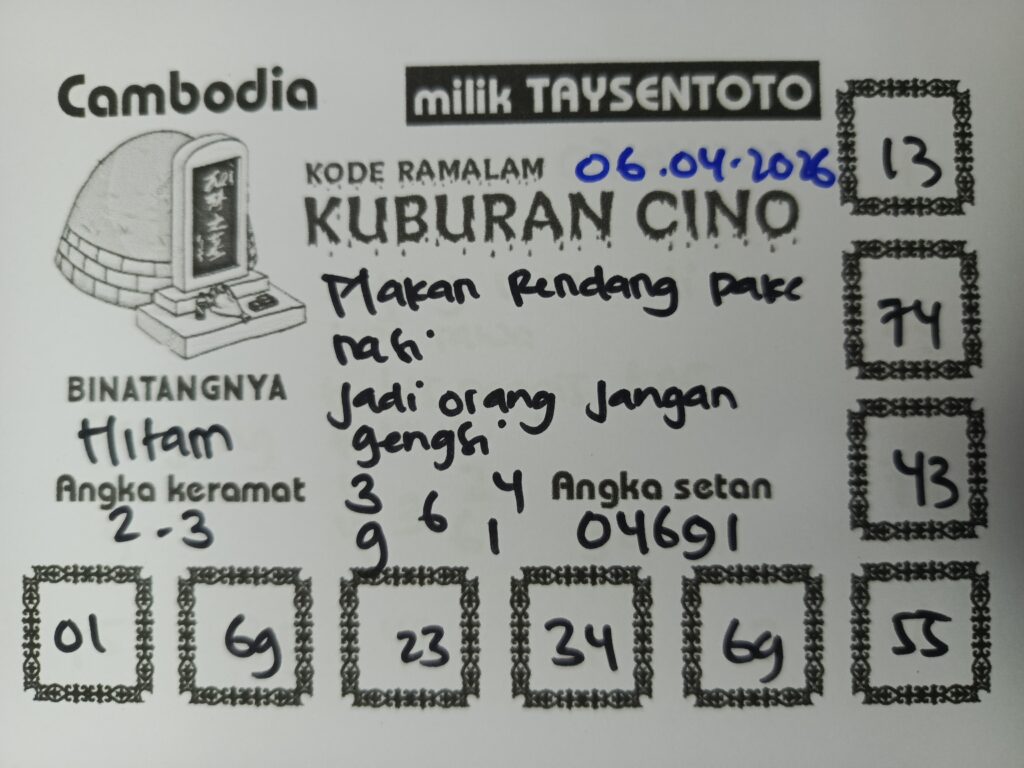 Cambodia
milik TAYSENTOTO
KODE RAMALAM 06.04.2026
KUBURAN CINO
Makan Rendang pake
nasi
Jadi orang Jangan
gengsi
BINATANGNYA
Hitam
Angka keramat
2-3
3 4
6
9 1
Angka setan
04691
13
74
43
01 69 23 34 69 55